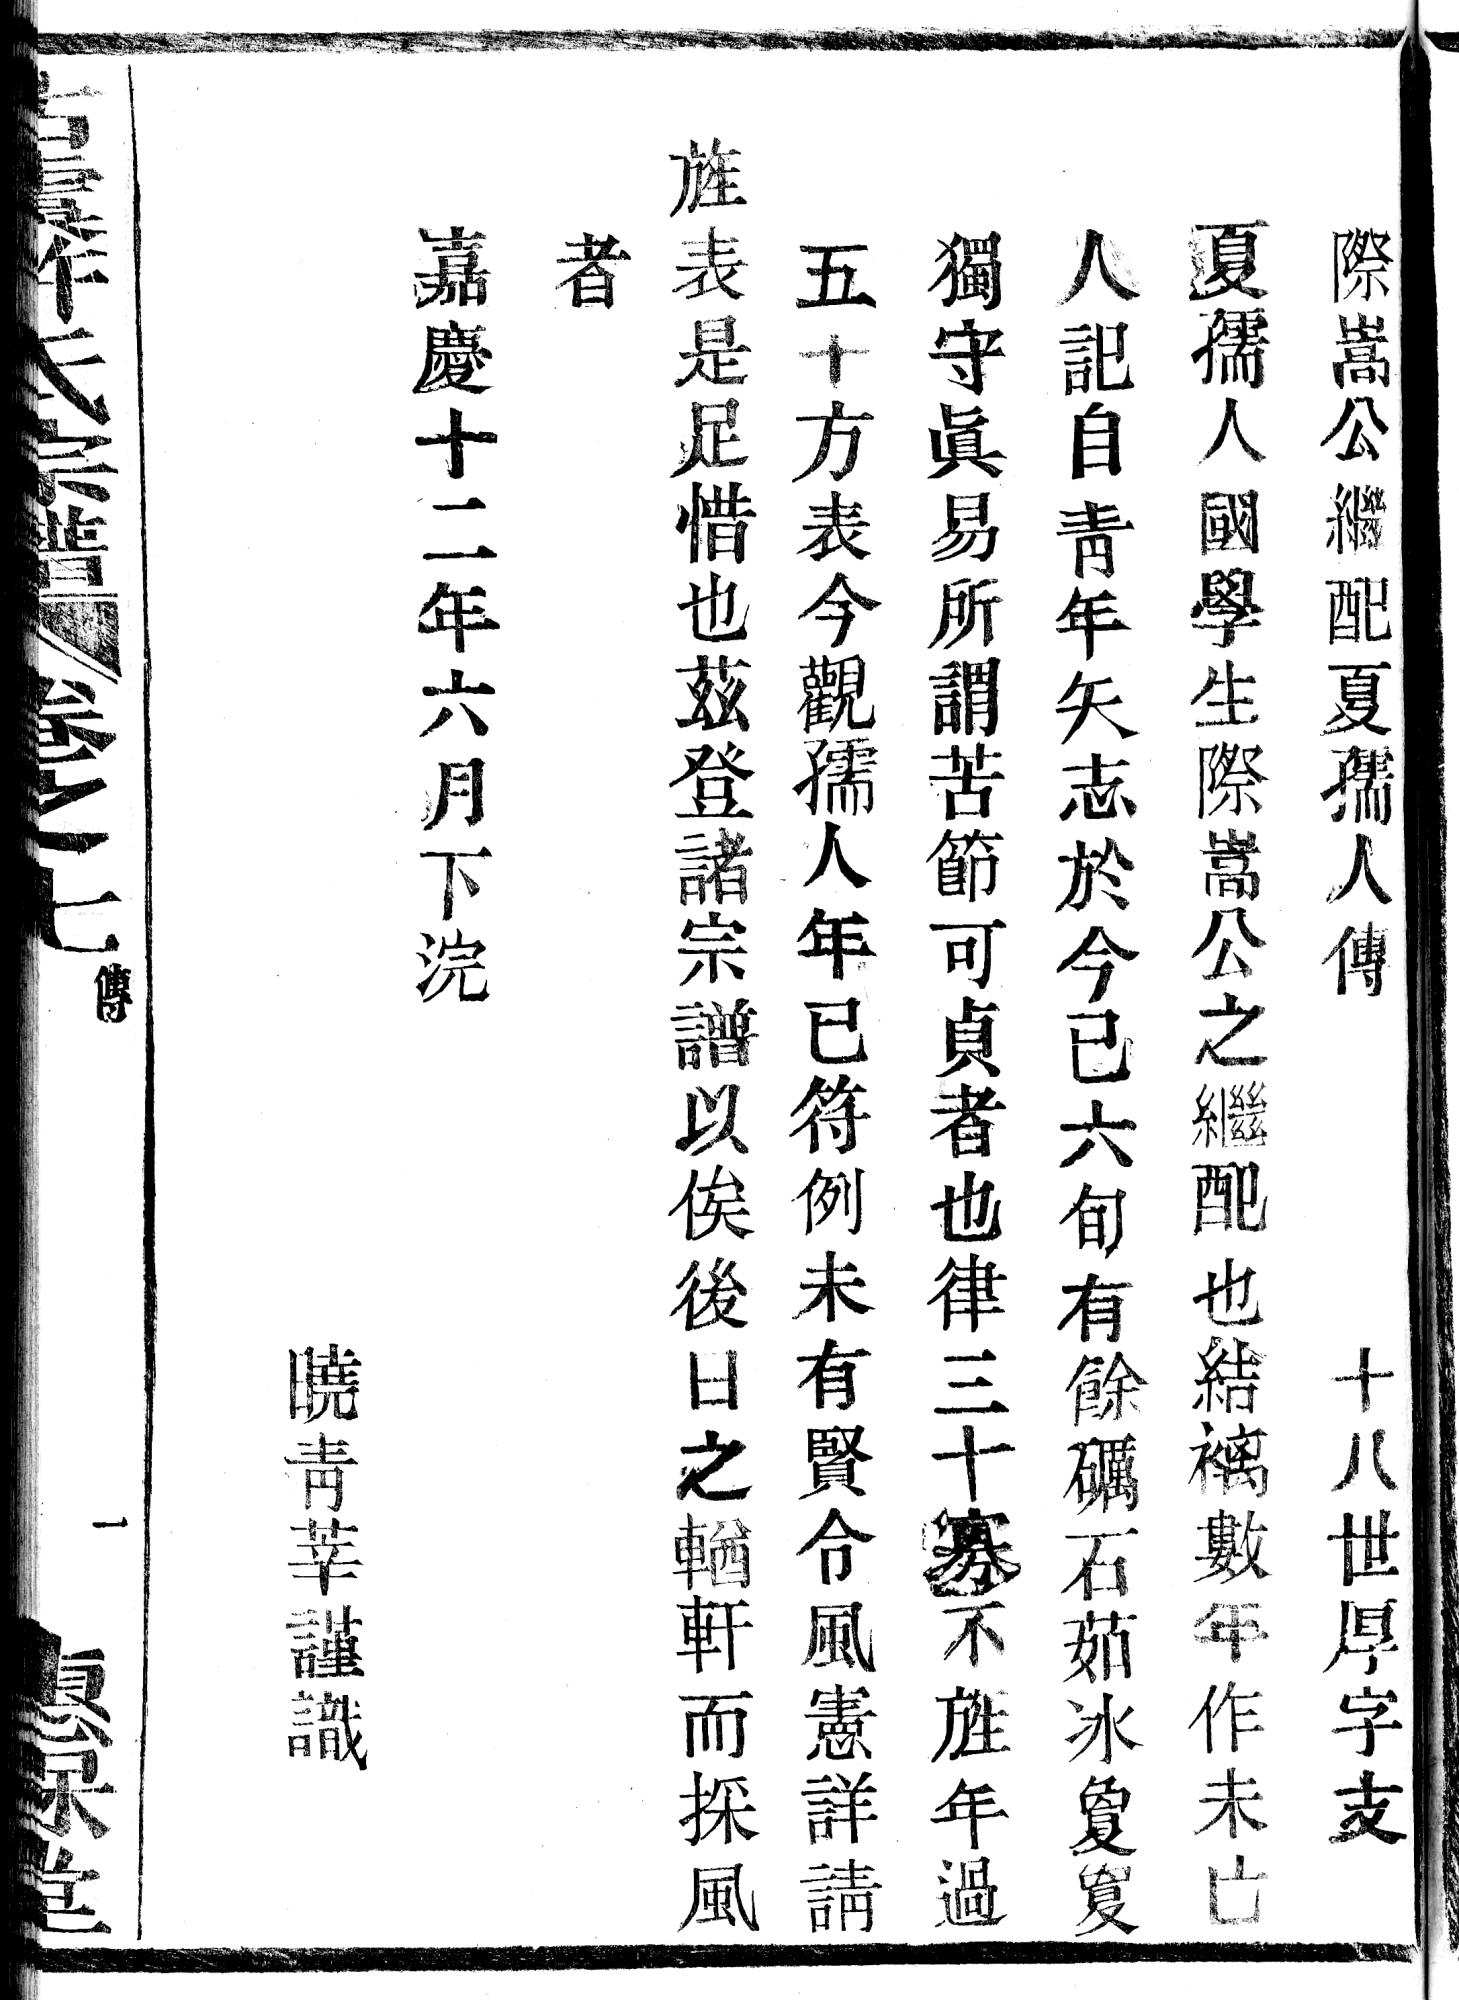 際嵩公繼配夏孺人傳　十八世厚字支
夏孺人國學生際嵩公之繼配也結褵數年作未亡
人記自靑年矢志於今已六旬有餘礪石茹冰敻敻
獨守眞易所謂苦節可貞者也律三十寡不旌年過
五十方表今觀孺人年已符例未有賢令風憲詳請
旌表是足惜也茲登諸宗譜以俟後日之輶軒而採風
者
嘉慶十二年六月下浣
曉靑莘謹識
氏宗譜　卷之七　傳　一　堂